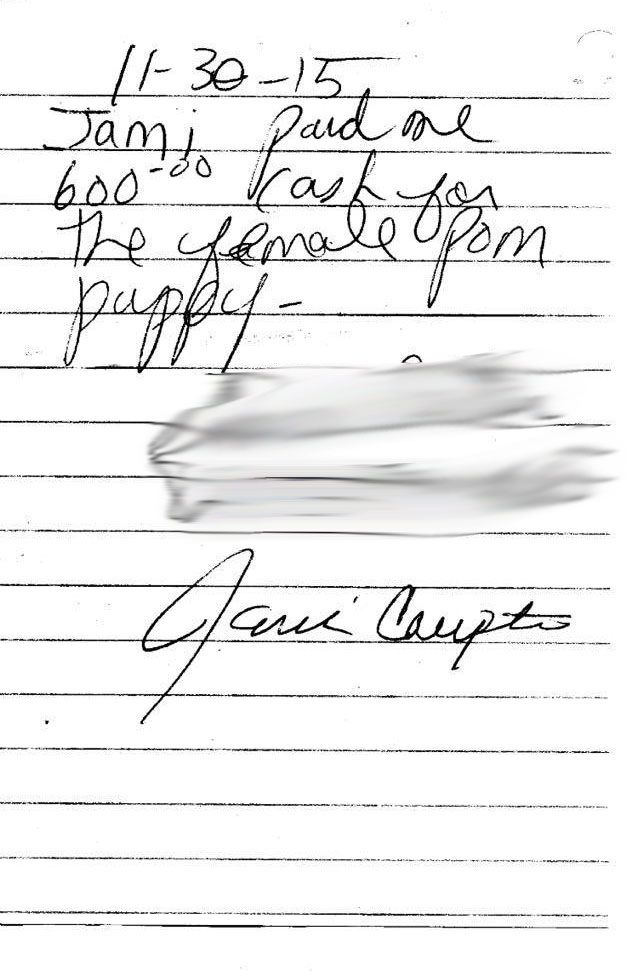 11-30-15
Jami paid me
600-00 cash for
the female pom
puppy-
Jami Compton